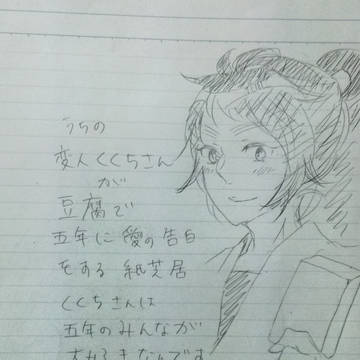 うちの
変人くくちさん
が
豆腐で
五年に愛の告白
をする紙芝居
くくちさんは
五年のみんなが
大好きなんです